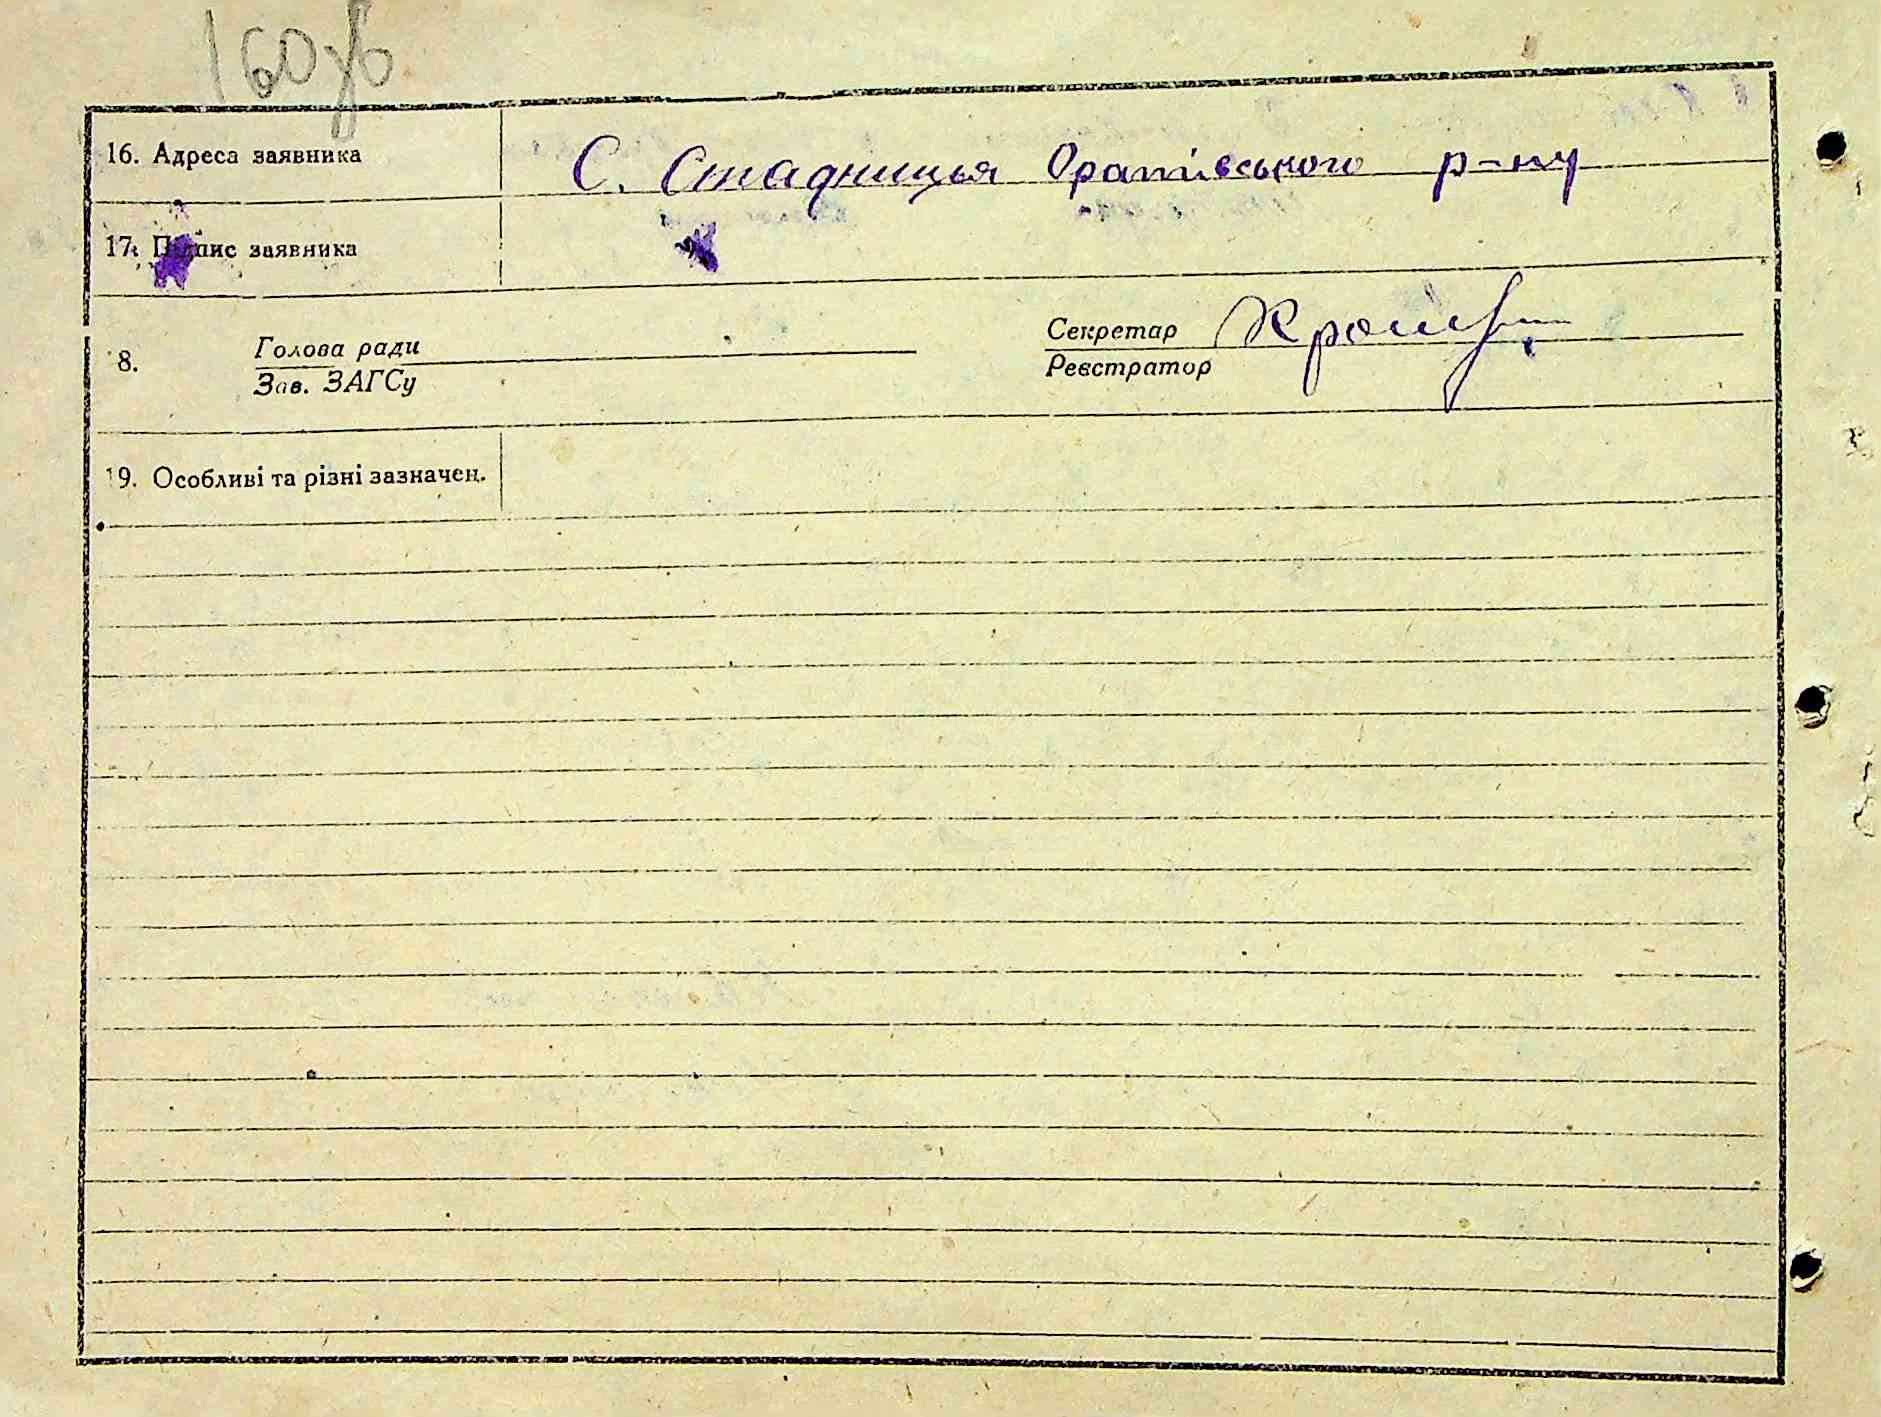 160зв
16. Адреса заявника С. Стадниця Оратівського р-ну
17. Підпис заявника
18. Голова ради
Зав. ЗАГСу
Секретар
Реєстратор
19. Особливі та різні зазначен.